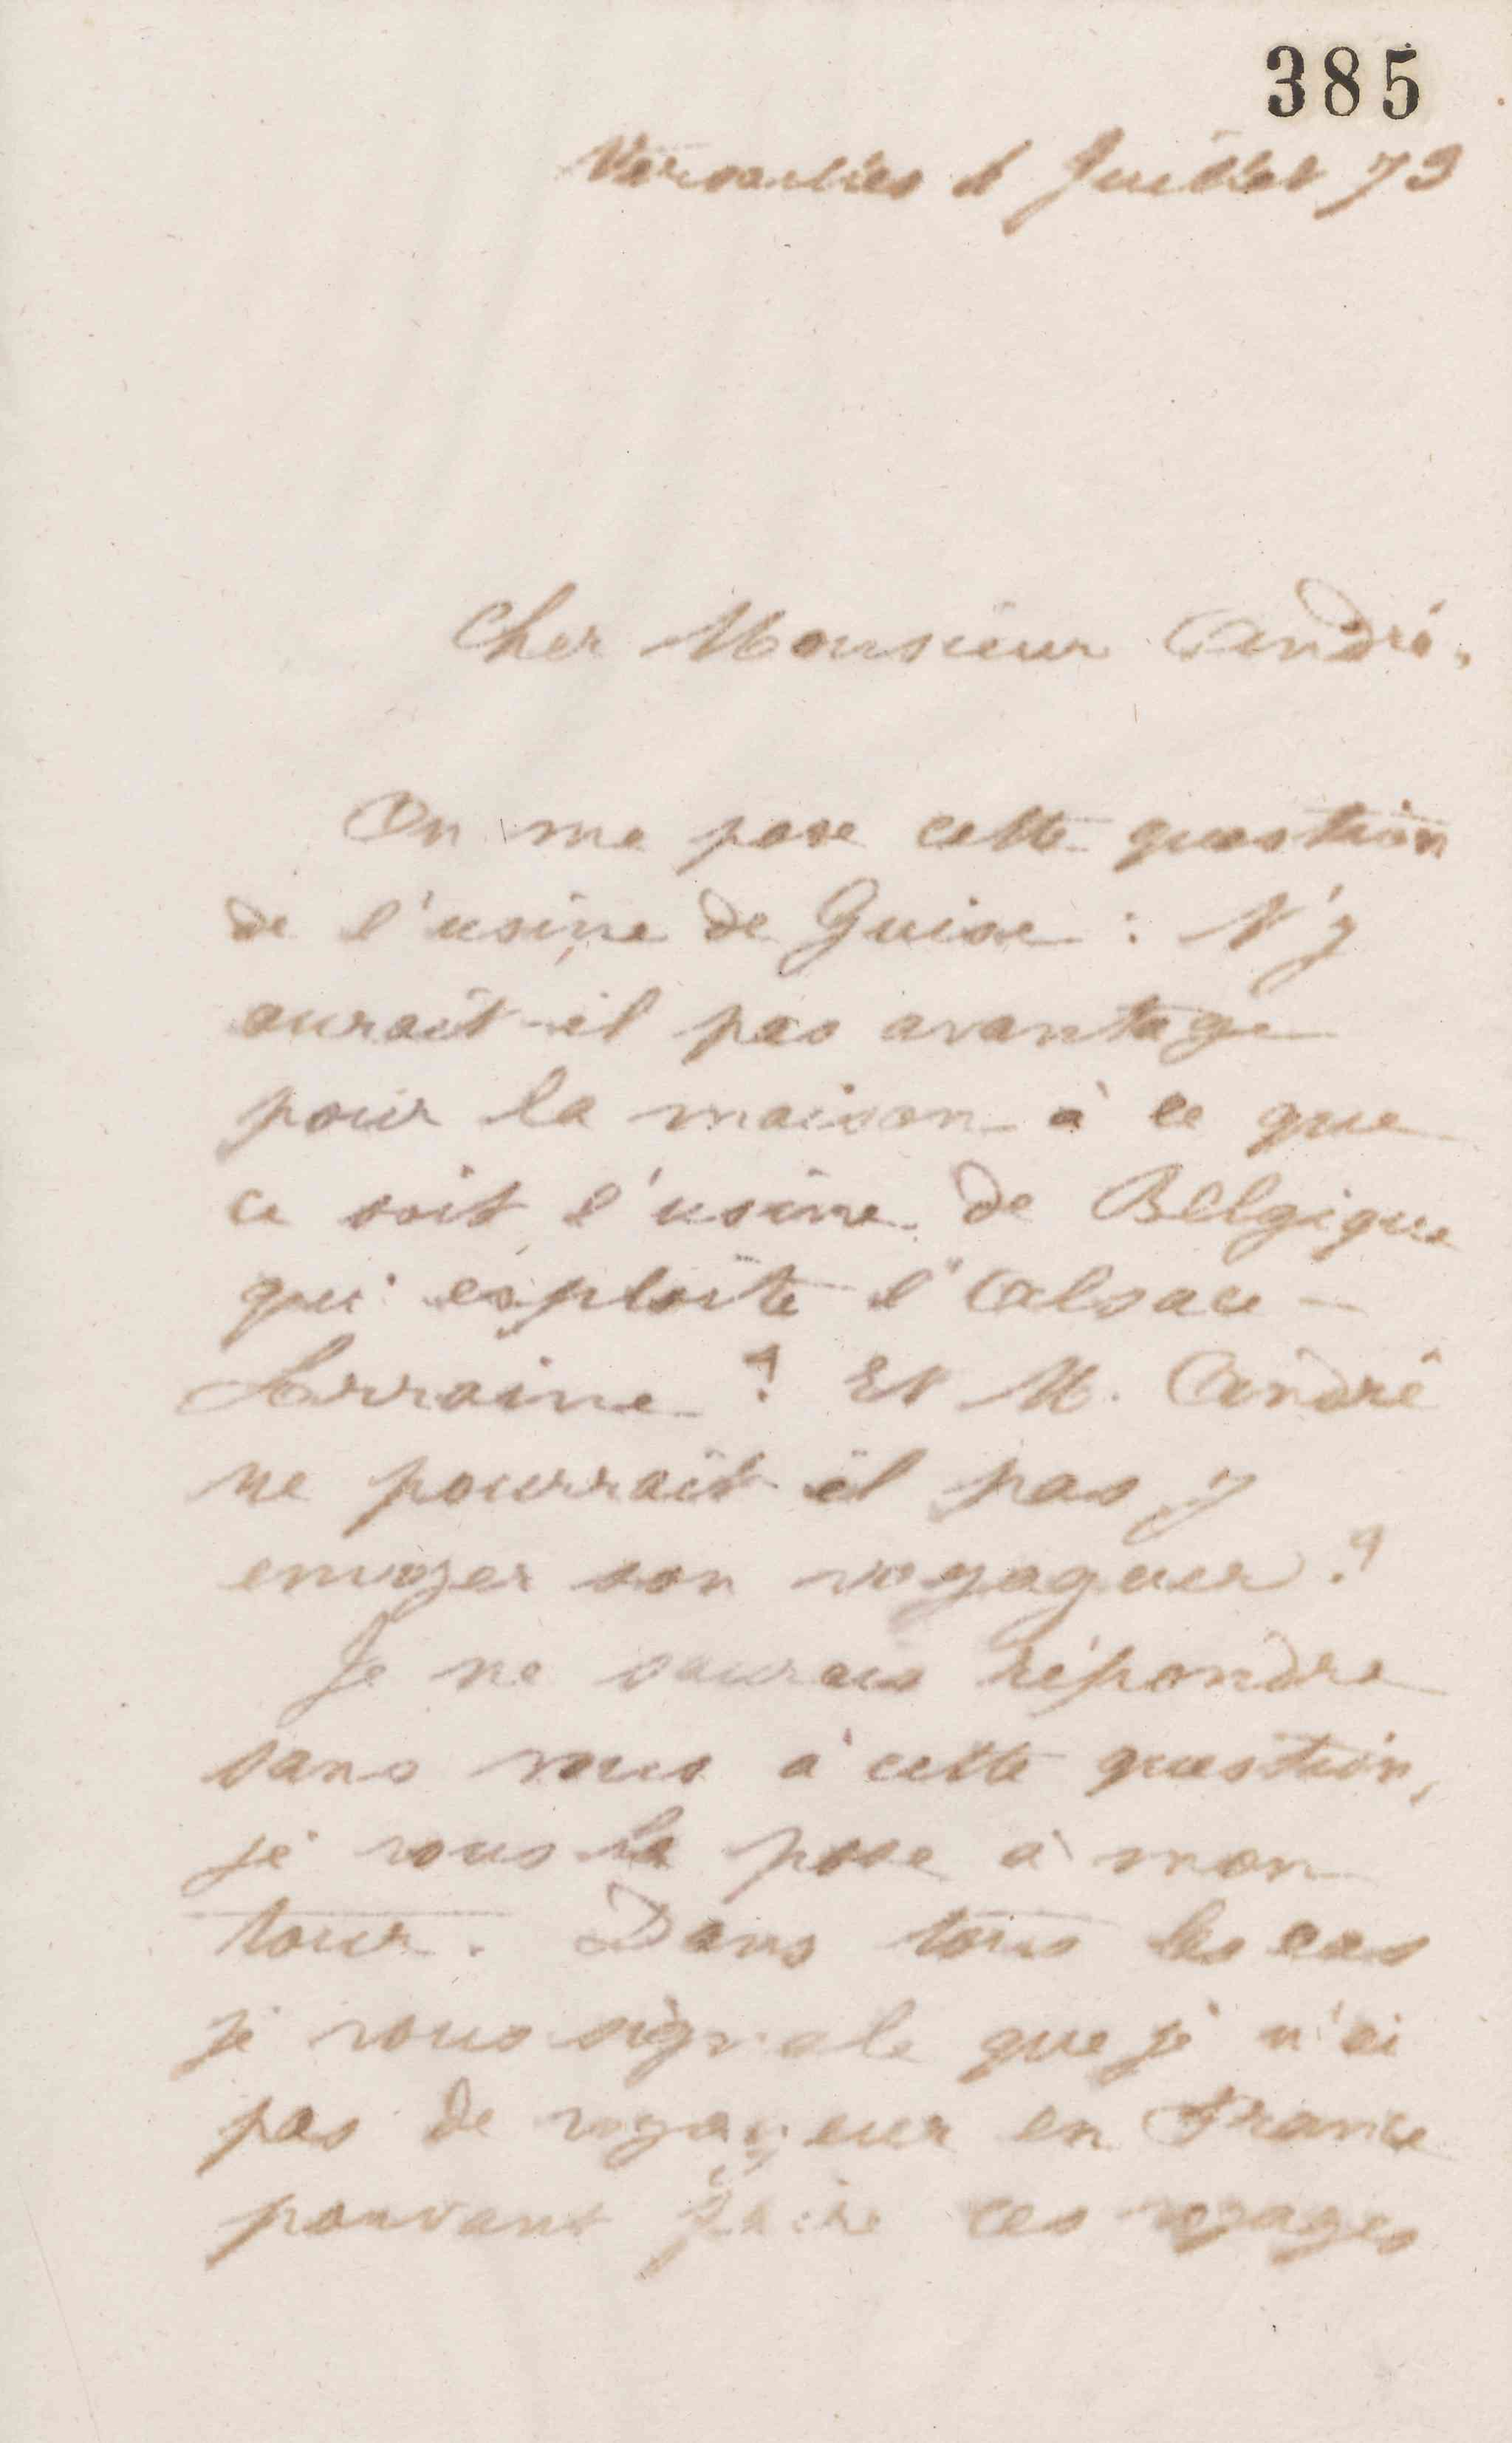 385
Versailles Juillet 73
Cher Monsieur André,
On me pose cette question
de l'usine de Guise : N'y
aurait-il pas avantage
pour la maison à ce que
ce soit l'usine de Belgique
qui exploite l'Alsace-
Lorraine ? Et M. André
ne pourrait-il pas y
envoyer son voyageur ?
Je ne saurais répondre
sans vous à cette question,
je vous la pose à mon
tour. Dans tous les cas
je vous signale que je n'ai
pas de voyageur en France
pouvant faire ces voyages